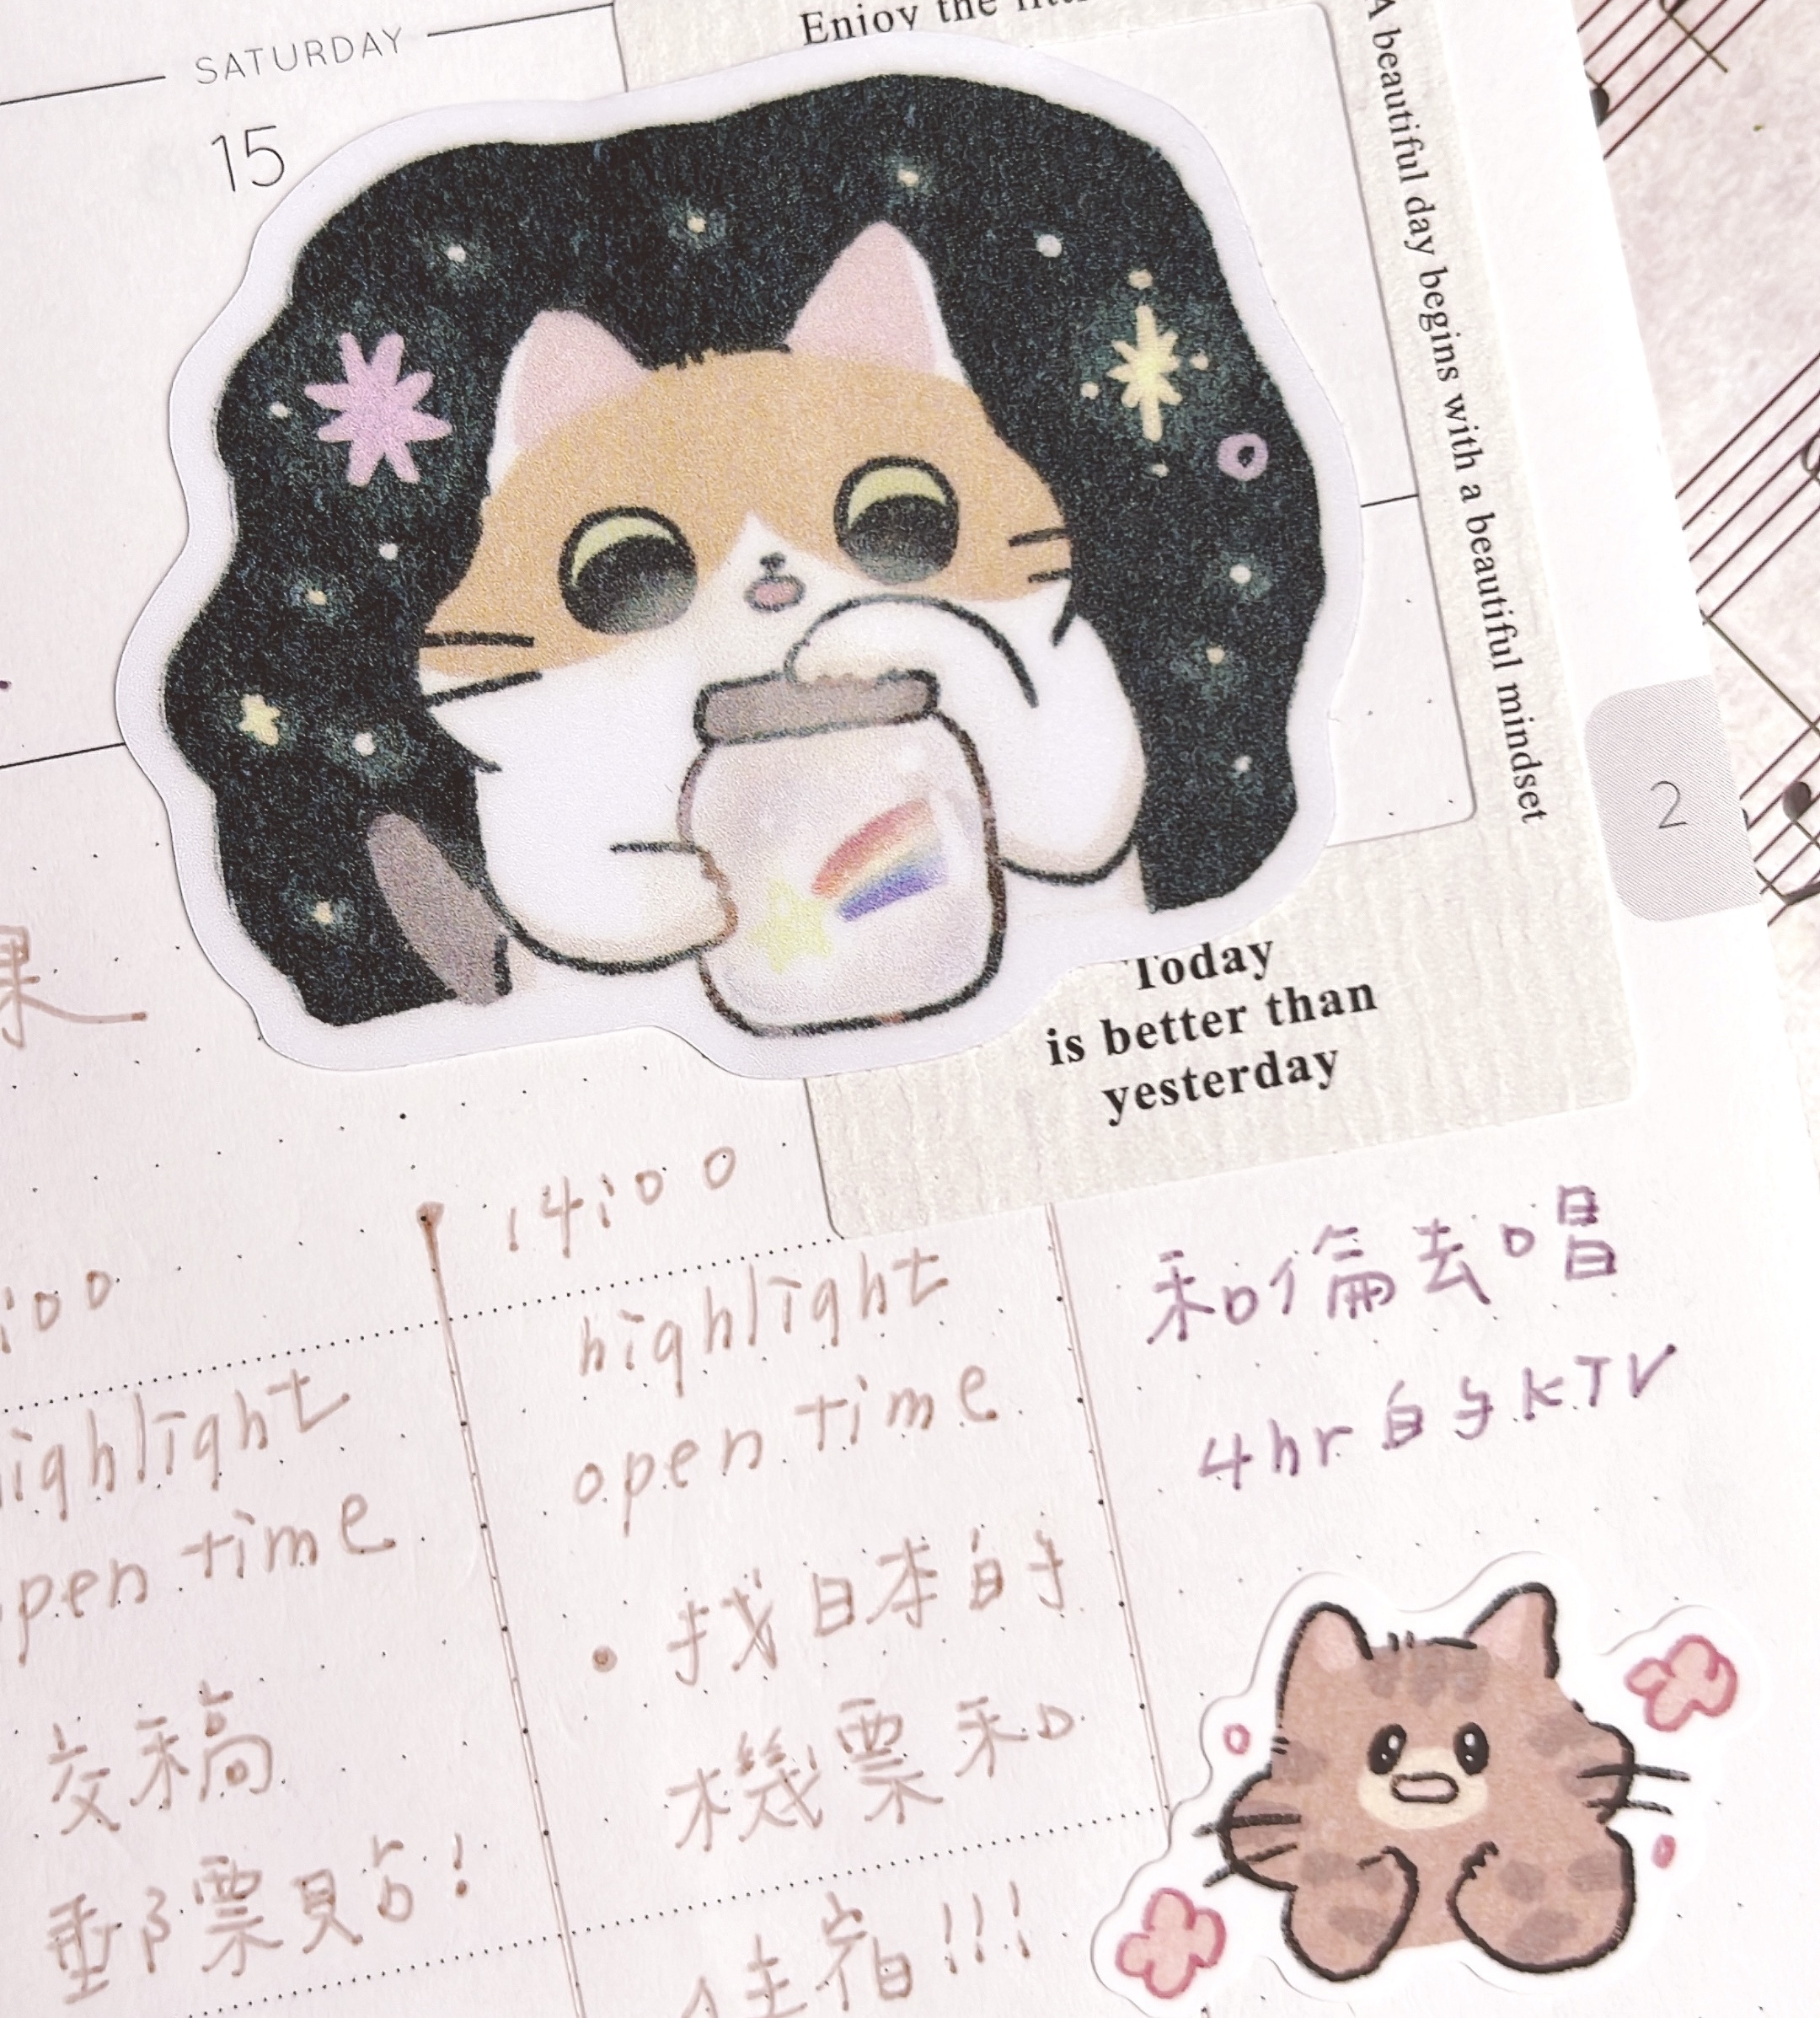 SATURDAY
15
Enjoy the
A beautiful day begins with a beautiful mindset
2
Today
is better than
yesterday
果
:00
highlight
open time
交稿
郵票貼!
14:00
highlight
open time
• 找日本的
機票和
住宿!!!
和倫去唱
4hr的KTV